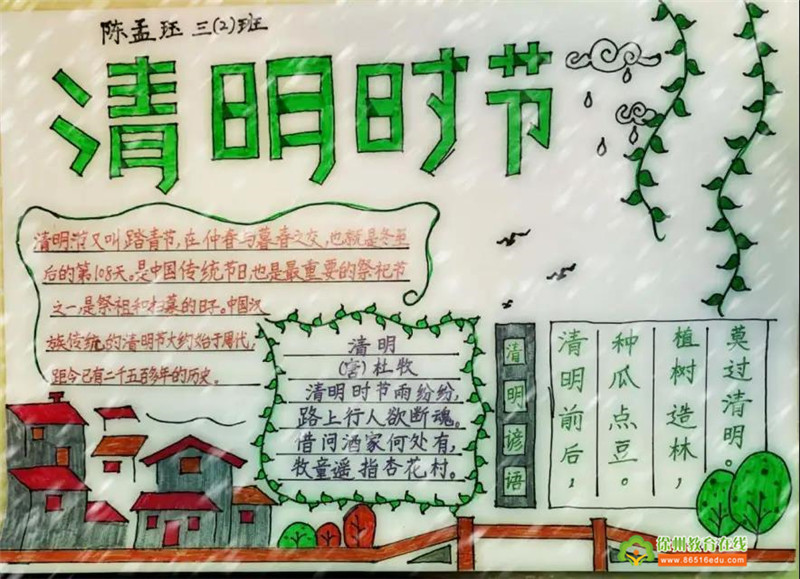 陈孟珏 三(2)班
清明时节
清明节又叫踏青节,在仲春与暮春之交,也就是冬至
后的第108天。是中国传统节日,也是最重要的祭祀节
之一是祭祖和扫墓的日子。中国汉
族传统的清明节大约始于周代,
距今已有二千五百多年的历史。
清明
(唐)杜牧
清明时节雨纷纷,
路上行人欲断魂。
借问酒家何处有,
牧童遥指杏花村。
清明谚语
清明前后,
种瓜点豆。
植树造林,
莫过清明。
徐州教育在线
www.86516edu.com